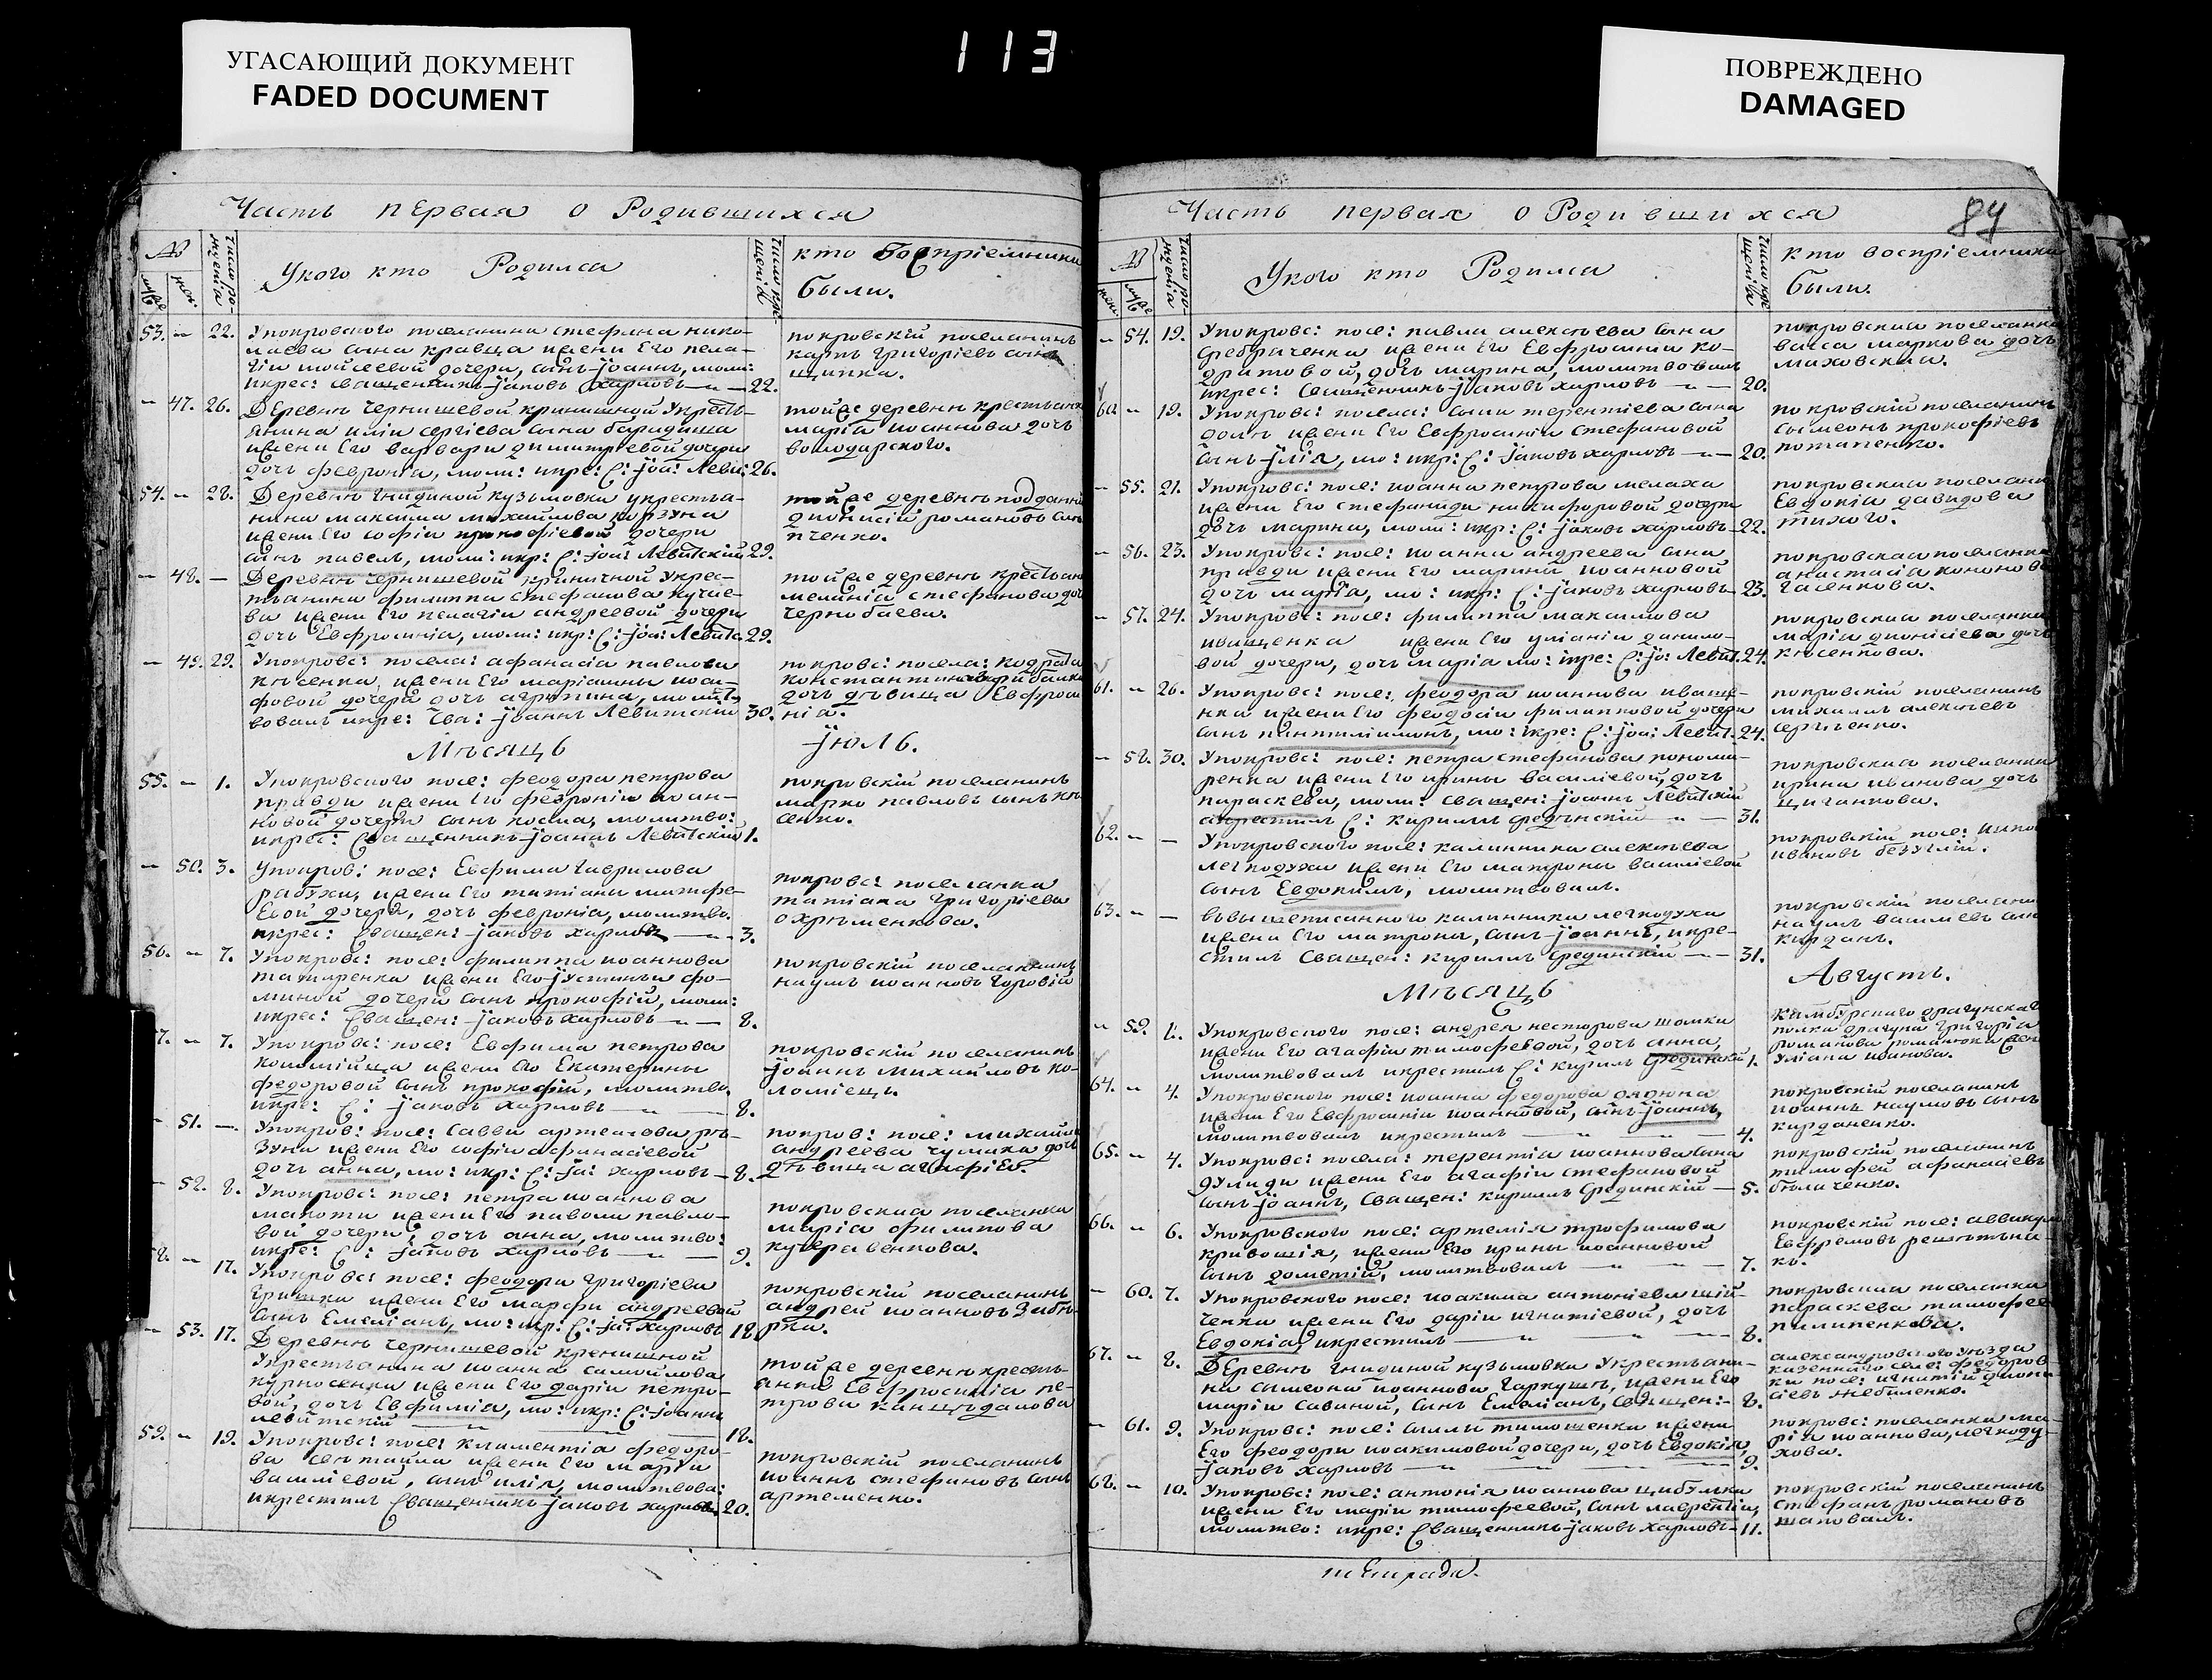 УГАСАЮЩИЙ ДОКУМЕНТ
FADED DOCUMENT
113
ПОВРЕЖДЕНО
DAMAGED
Часть первая о Родившихся
Укого кто Родился
кто Восприемники
были.
53. 22. Упокровского поселянина стефана нико-
лаева сына кравца жени Его пела-
гіи мойсеевой дочери, сынъ іоаннъ, моли:
икрес: священникъ іаковъ харловъ 22.
покровскій поселянинъ
карпъ григоріевъ сынъ
щипка.
47. 26. Деревнѣ чернишевой кринишной Укресть-
янина иліи сергіева сына
жени Его варвари димитріевой дочери
дочь февронія, моли: икре: С: іоа: Левит: 26.
тойже деревнѣ крестьянка
марія иоаннова дочь
володарского.
54. 28. Деревнѣ гнидиной кузьмовки укрестья-
нина максима михайлова корзуна
жени Его софіи прокофіевой дочери
сынъ павелъ, моли: икр: С: іоа: Левитскій 29.
тойже деревнѣ подданній
діонисій романовъ сынъ
пченко.
48. Деревнѣ чернишевой криничной Укрес-
тьянина филиппа стефанова кучие-
ва жени Его пелагіи андреевой дочери
дочь Евфросинія, моли: икр: С: іоа: Левитс. 29.
тойже деревнѣ крестьянка
меланія стефанова дочь
чернобаева.
49. 29. Упокровс: посела: афанасія павлова
ктсенка, жени Его маріанны иоси-
фовой дочери дочь агрипина, молит-
вовалъ икре: Свя: іоаннъ Левитскій 30.
покровс: посела: кодрата
константинова
дочь дѣвица Евфроси
нія.
Мѣсяцъ іюль.
55. 1. Упокровского посе: феодора петрова
правди жени Его февроніи иоан-
новой дочери сынъ косма, молитво:
икрес: Священникъ іоаннъ Левитскій 1.
покровскій поселянинъ
марко павловъ сынъ кт
сенко.
50. 3. Упокров: посе: Евфима гаврилова
жени Его татіани матфе-
Евой дочери, дочь февронія, молитво.
икрес: Священ: іаковъ харловъ 3.
покровс: поселянка
татіана григоріева
охрѣменкова.
56. 7. Упокровс: посе: филиппа иоаннова
татаренка жени Его іустиніи фо-
миной дочери сынъ прокофій, моли:
икрес: Священ: іаковъ харловъ 8.
покровскій поселянинъ
наумъ иоанновъ
7. 7. Упокровс: посе: Евфима петрова
коломійца жени Его Екатерины
федоровой сынъ прокофій, молитво.
икре: С: іаковъ харловъ 8.
покровскій поселянинъ
іоаннъ михайловъ ко-
ломіецъ.
51. Упокров: посе: Саввы артемова рѣ-
зуна жени Его софіи афанасіевой
дочь анна, мо: икр: С: іа: харловъ 8.
покров: посе: михайла
андреева чумака дочь
дѣвица агафія.
52. 8. Упокровс: посе: петра иоаннова
махоти жени Его павли павло-
вой дочери, дочь анна, молитво:
икре: С: іаковъ харловъ 9.
покровская поселянка
марія филипова
кучерявенкова.
58. 17. Упокровс: посе: феодора григоріева
гришки жени Его марфи андреевой
сынъ Емеліанъ, мо: икр: С: іа: харловъ 18.
покровскій поселянинъ
андрей иоанновъ
53. 17. Деревнѣ чернишевой кренишной
Укрестьянина иоанна самойлова
курносенка жени Его даріи петро-
вой, дочь Евфимія, мо: икр: С: іоаннъ
левитскій 18.
тойже деревнѣ кресть-
янка Евфросинія пе-
трова
59. 19. Упокровс: посе: климентія федоро-
ва жени Его маріи
василіевой, сынъ илія, молитвова:
икрестилъ Священникъ іаковъ харловъ 20.
покровскій поселянинъ
иоаннъ стефановъ сынъ
артеменко.
Часть первая о Родившихся
84
Укого кто Родился
кто восприемники
были.
54. 19. Упокровс: посе: павла алексѣева сына
жени Его Евфросиніи ко-
дратовой, дочь марина, молитвовалъ
икрес: Священникъ іаковъ харловъ 20.
покровская поселянка
васса маркова дочь
миховская.
60. 19. Упокровс: посела: саввы терентіева сына
жени Его Евфросиніи стефановой
сынъ ілія, мо: икр: С: іаковъ харловъ 20.
покровскій поселянинъ
сымеонъ прокофіевъ
потапенко.
55. 21. Упокровс: посе: иоанна петрова мелаха
жени Его стефаниди никифоровой дочери
дочь марина, моли: икр: С: іаковъ харловъ 22.
покровская поселянка
Евдокія давидова
тихого.
56. 23. Упокровс: посе: иоанна андреева сына
правди жени Его марини иоанновой
дочь марія, мо: икр: С: іаковъ харловъ 23.
покровская поселянка
анастасія кононова
гасенкова.
57. 24. Упокровс: посе: филиппа максимова
иващенка жени Его уліаніи данило-
вой дочери, дочь марія мо: икре: С: іо: Левит. 24.
покровская поселянка
марія діонисіева дочь
ктсенкова.
61. 26. Упокровс: посе: феодора иоаннова иваще-
нка жени Его феодосіи филипповой дочери
сынъ пантилимонъ, мо: икре: С: іоа: Левит. 24.
покровскій поселянинъ
михаилъ алексѣевъ
сергѣенко.
58. 30. Упокровс: посе: петра стефанова понома-
ренка жени Его ирины василіевой, дочь
параскева, моли: священ: іоаннъ Левитскій
акрестилъ С: кириллъ срединскій 31.
покровская поселянка
ирина иванова дочь
циганкова.
62. Упокровского посе: калинника алексѣева
легкодуха жени Его матроны василіевой
сынъ Евдокимъ, молитвовалъ.
покровскій посе:
ивановъ безуглій.
63. вышеписанного калинника легкодуха
жени Его матроны, сынъ іоаннъ, икре-
стилъ Священ: кириллъ срединскій 31.
покровскій поселянинъ
наумъ василіевъ сынъ
кирданъ.
Мѣсяцъ Августъ.
59. 1. Упокровского посе: андрея нестерова шомки
жени Его агафіи тимофеевой, дочь анна,
молитвовалъ икрестилъ С: кирилъ срединскій 1.
драгунскаго
полка драгуна григорія
романова романюка жена
Уліана иоанова.
64. 4. Упокровского посе: иоанна федорова
жени Его Евфросиніи иоанновой, сынъ іоаннъ,
молитвовалъ икрестилъ 4.
покровскій поселянинъ
иоаннъ наумовъ сынъ
кирданенко.
65. 4. Упокровс: посела: терентія иоаннова сына
дулиди жени Его агафіи стефановой
сынъ іоаннъ, Священ: кириллъ Срединскій 5.
покровскій поселянинъ
тимофей афанасіевъ
бѣличенко.
66. 6. Упокровского посе: артемія трофимова
кривошія, жени Его ирины иоанновой
сынъ дометій, молитвовалъ 7.
покровскій посе: аввакумъ
Евфремовъ решетни-
ко.
60. 7. Упокровского посе: иоакима антоніева шій-
ченка жени Его даріи игнатіевой, дочь
Евдокія, икрестилъ 8.
покровская поселянка
параскева тимофее
пилипенкова.
67. 8. Деревнѣ гнидиной кузьмовки Укрестьяни-
на симеона иоаннова гаркуши, жени Его
маріи савиной, сынъ Емеліанъ, Священ: 8.
александровского уѣзда
казенного села: федоров
ки посе: игнатій діони-
сіевъ жебиленко.
61. 9. Упокровс: посе: саввы тимошенка жени
Его феодоры иоакимовой дочери, дочь Евдокія,
іаковъ харловъ 9.
покровс: поселянка ма-
рія иоаннова, легкоду-
хова.
68. 10. Упокровс: посе: антонія иоаннова цибулки
жени Его маріи тимофеевой, сынъ лаврентій,
молитво: икре: Священникъ іаковъ харловъ 11.
покровскій поселянинъ
стефанъ романовъ
шаповалъ.